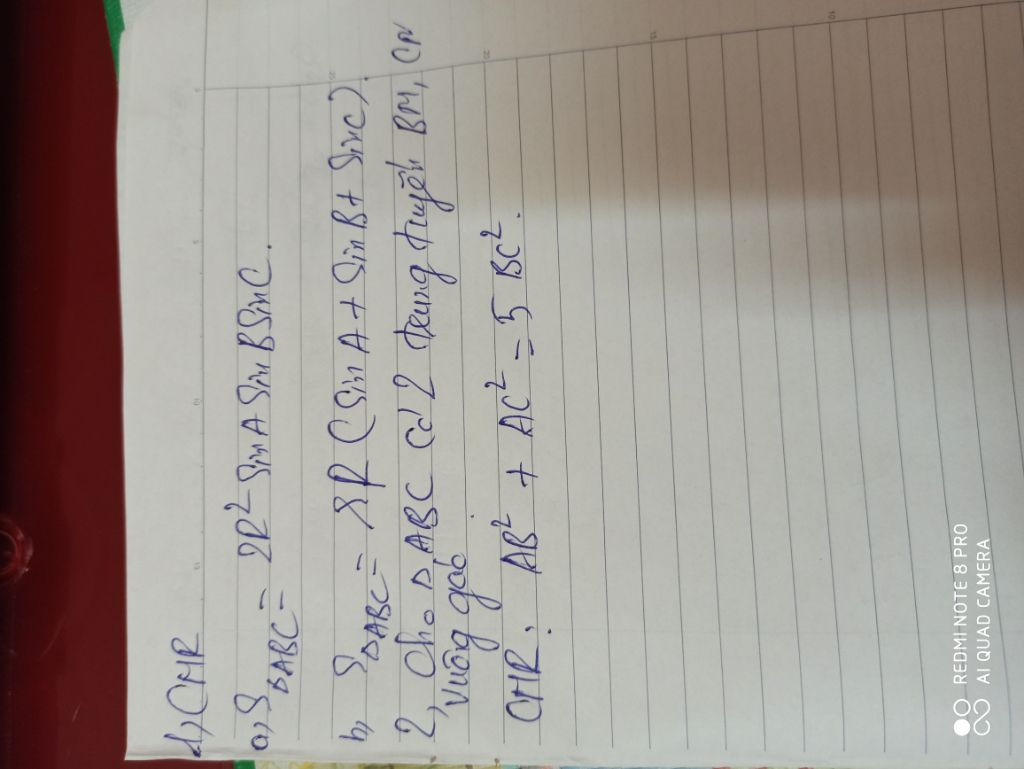 1, CMR
a, S∆ABC = 2R² Sin A Sin B Sin C.
b, S∆ABC = rR (Sin A + Sin B + Sin C).
2, Cho ∆ABC Có 2 trung tuyến BM, CN
vuông góc
CMR: AB² + AC² = 5 BC².
REDMI NOTE 8 PRO
AI QUAD CAMERA